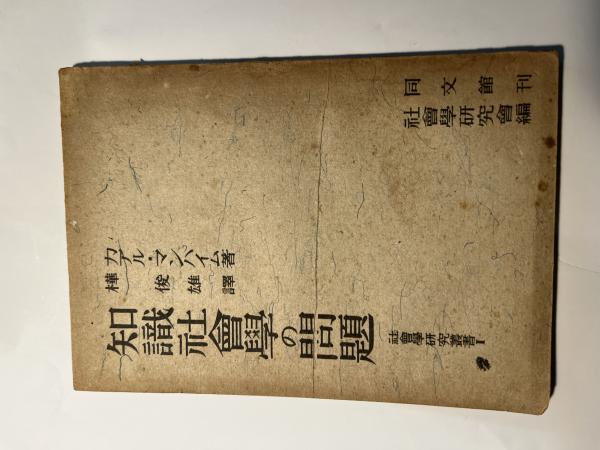 同文館刊
社會學研究會編
カアル・マンハイム著
樺俊雄譯
知識社會學の問題
社會學研究叢書 I